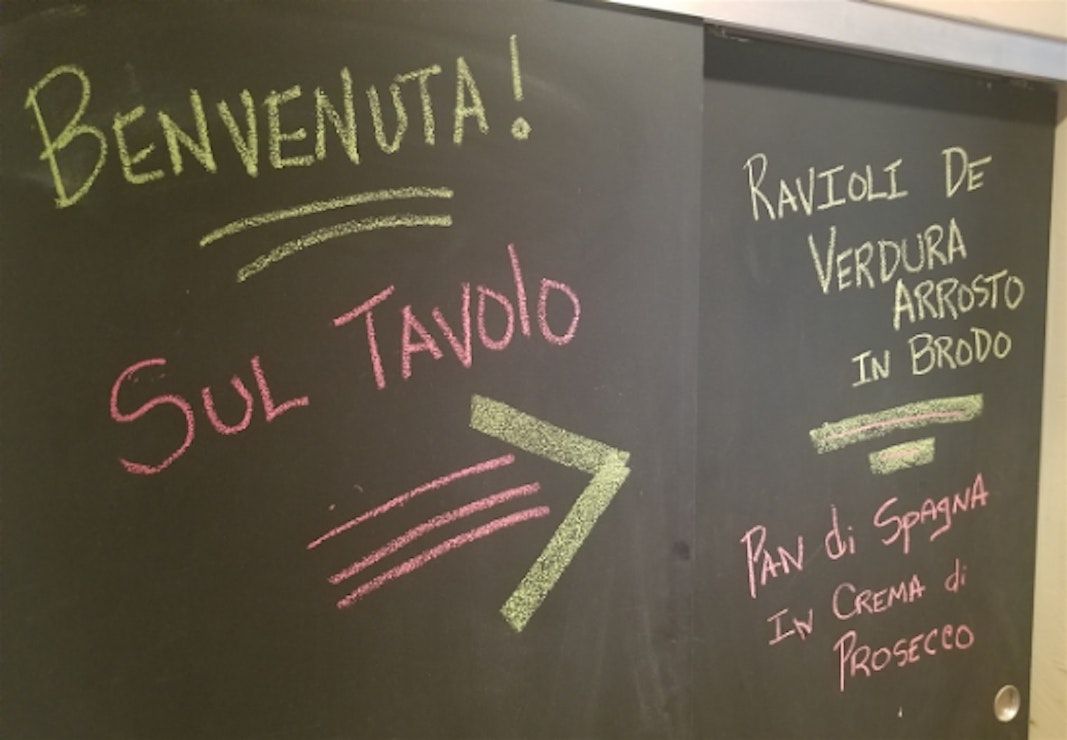 BENVENUTA!
SUL TAVOLO
RAVIOLI DE
VERDURA
ARROSTO
IN BRODO
PAN di SPAGNA
IN CREMA di
PROSECCO